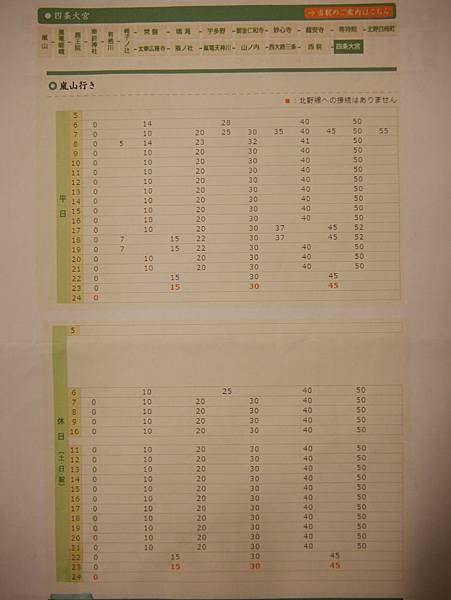 四条大宮
→ 当駅のご案内はこちら
常盤 鳴滝 宇多野 御室仁和寺 妙心寺 龍安寺 等持院 北野白梅町
嵐山 嵐電嵯峨 鹿王院 車折神社 有栖川 帷子ノ辻 太秦広隆寺 蚕ノ社 嵐電天神川 山ノ内 西大路三条 西院 四条大宮
嵐山行き
■：北野線への接続はありません
平日
5
6 0 14 28 40 50
7 0 10 20 25 30 35 40 45 50 55
8 0 5 14 23 32 41 50
9 0 10 20 30 40 50
10 0 10 20 30 40 50
11 0 10 20 30 40 50
12 0 10 20 30 40 50
13 0 10 20 30 40 50
14 0 10 20 30 40 50
15 0 10 20 30 40 50
16 0 10 20 30 40 50
17 0 10 20 30 37 45 52
18 0 7 15 22 30 37 45 52
19 0 7 15 22 30 40 50
20 0 10 20 30 40 50
21 0 10 20 30 40 50
22 0 15 30 45
23 0 15 30 45
24 0
休日（土・日・祝）
5
6 10 25 40 50
7 0 10 20 30 40 50
8 0 10 20 30 40 50
9 0 10 20 30 40 50
10 0 10 20 30 40 50
11 0 10 20 30 40 50
12 0 10 20 30 40 50
13 0 10 20 30 40 50
14 0 10 20 30 40 50
15 0 10 20 30 40 50
16 0 10 20 30 40 50
17 0 10 20 30 40 50
18 0 10 20 30 40 50
19 0 10 20 30 40 50
20 0 10 20 30 40 50
21 0 10 20 30 40 50
22 0 15 30 45
23 0 15 30 45
24 0